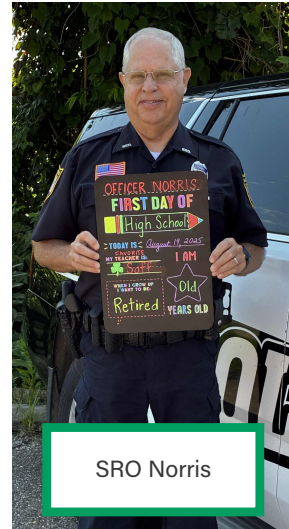 OFFICER NORRIS
FIRST DAY OF
High School
TODAY IS August 19, 2025
FAVORITE
MY TEACHER IS:
I AM
Old
YEARS OLD
WHEN I GROW UP
I WANT TO BE:
Retired
SRO Norris